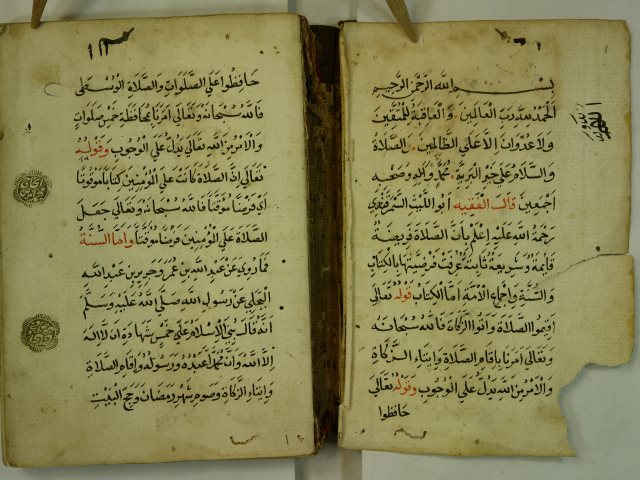 بسم الله الرحمن الرحيم
الحمد لله رب العالمين والعاقبة للمتقين
ولا عدوان الا على الظالمين والصلاة
والسلام على خير البرية محمد واله وصحبه
اجمعين قال الفقيه ابو الليث السمرقندي
رحمة الله عليه اعلم بان الصلاة فريضة
قائمة وشريعة ثابتة عرفت فرضيتها بالكتاب
والسنة واجماع الامة اما الكتاب قوله تعالى
اقيموا الصلاة واتوا الزكاة فالله سبحانه
وتعالى امرنا باقام الصلاة وايتاء الزكاة
والامر من الله يدل على الوجوب وقوله تعالى
حافظوا
حافظوا على الصلوات والصلاة الوسطى
فالله سبحانه وتعالى امرنا بمحافظة خمس صلوات
والامر من الله تعالى يدل على الوجوب وقوله
تعالى ان الصلاة كانت على المؤمنين كتابا موقوتا
اي فرضا موقتا فالله سبحانه وتعالى جعل
الصلاة على المؤمنين فرضا موقتا واما السنة
فما روي عن عبد الله بن عمر وجرير بن عبد الله
البجلي عن رسول الله صلى الله عليه وسلم
انه قال بني الاسلام على خمس شهادة ان لا اله
الا الله وان محمدا عبده ورسوله واقام الصلاة
وايتاء الزكاة وصوم شهر رمضان وحج البيت